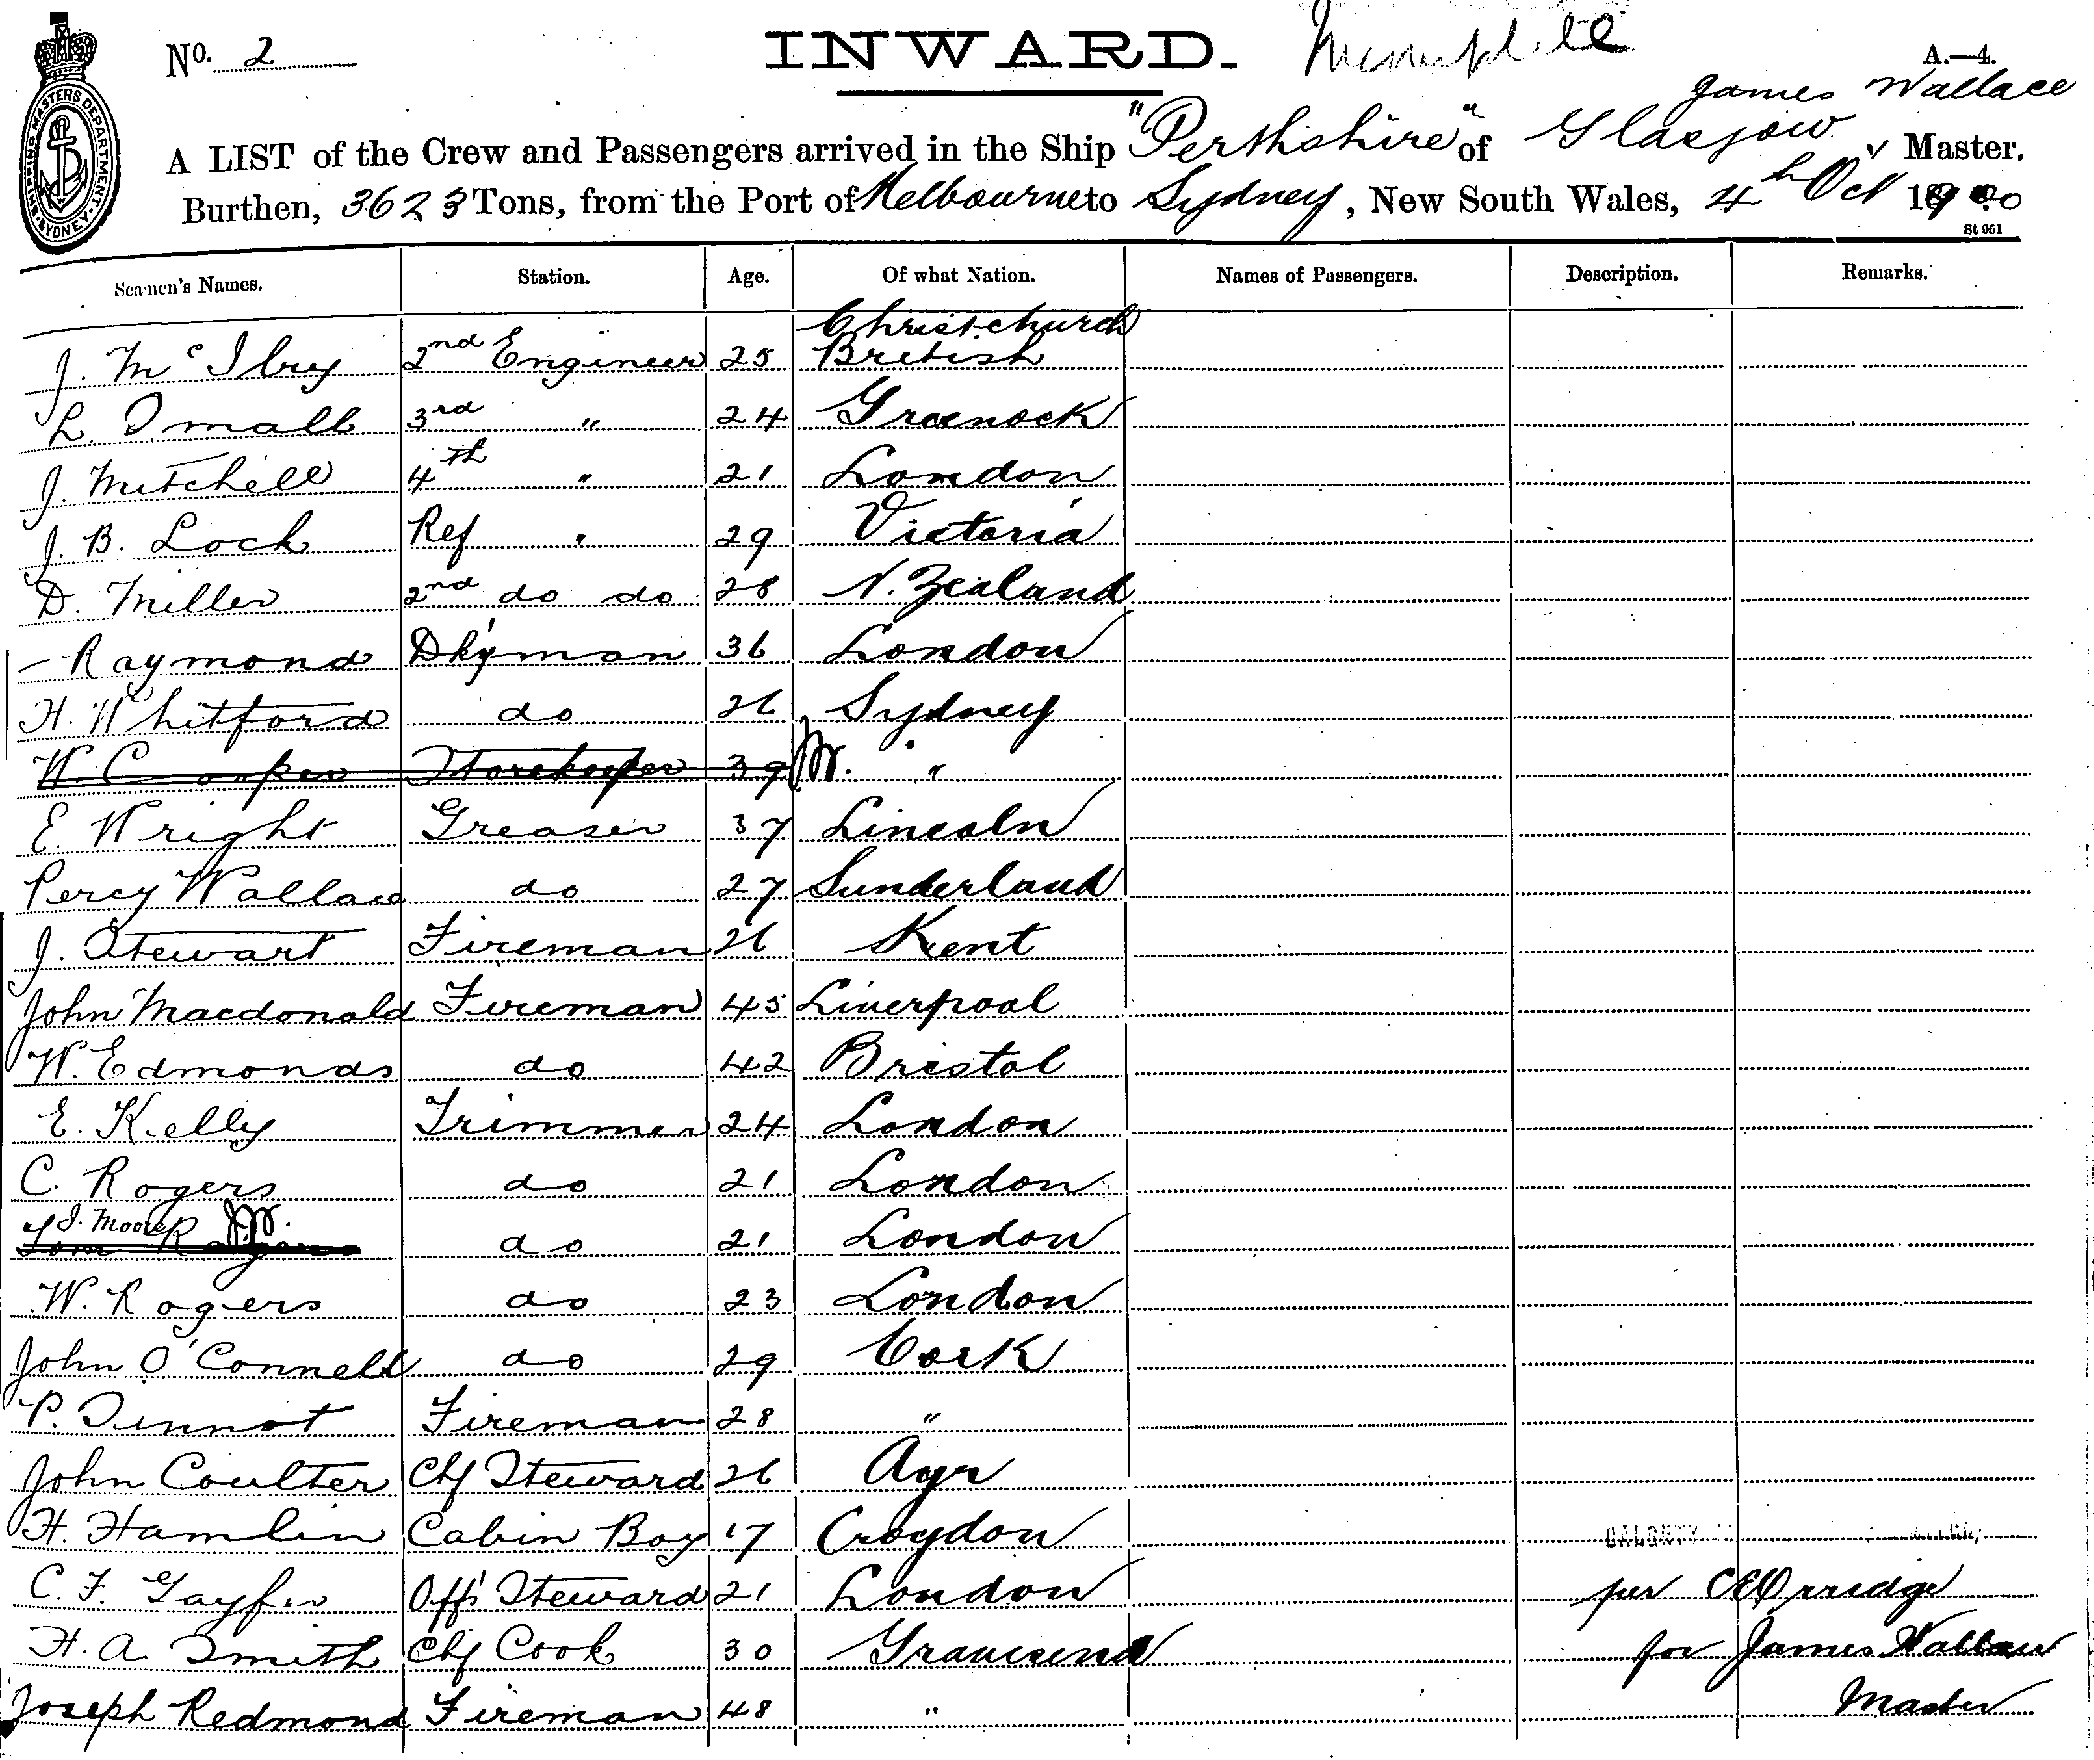 No. 2 INWARD. A.—4.
James Wallace
A LIST of the Crew and Passengers arrived in the Ship "Perthshire" of Glasgow, Master.
Burthen, 3623 Tons, from the Port of Melbourne to Sydney, New South Wales, 4th Oct 1900
St 951
SHIPPING MASTERS DEPARTMENT SYDNEY
Seamen's Names. Station. Age. Of what Nation. Names of Passengers. Description. Remarks.
Christchurch
J. McIlroy 2nd Engineer 25 British
L. Small 3rd " 24 Greenock
J. Mitchell 4th " 21 London
J. B. Lock Ref " 29 Victoria
D. Miller 2nd do do 28 N. Zealand
— Raymond Dky'man 36 London
H. Whitford do 26 Sydney
W. Cooper Storekeeper 39 JW. "
E. Wright Greaser 37 Lincoln
Percy Wallace do 27 Sunderland
J. Stewart Fireman 26 Kent
John Macdonald Fireman 45 Liverpool
W. Edmonds do 42 Bristol
E. Kelly Trimmer 24 London
C. Rogers do 21 London
J. Moore JW.
Tom do 21 London
W. Rogers do 23 London
John O'Connell do 29 Cork
P. Sinnot Fireman 28 "
John Coulter Chf Steward 26 Ayr
H. Hamlin Cabin Boy 17 Croydon
C. F. Gayfer Offs Steward 21 London
per C E Orridge
H. A. Smith Chf Cook 30 Gravesend
for James Wallace
Joseph Redmond Fireman 48 "
Master